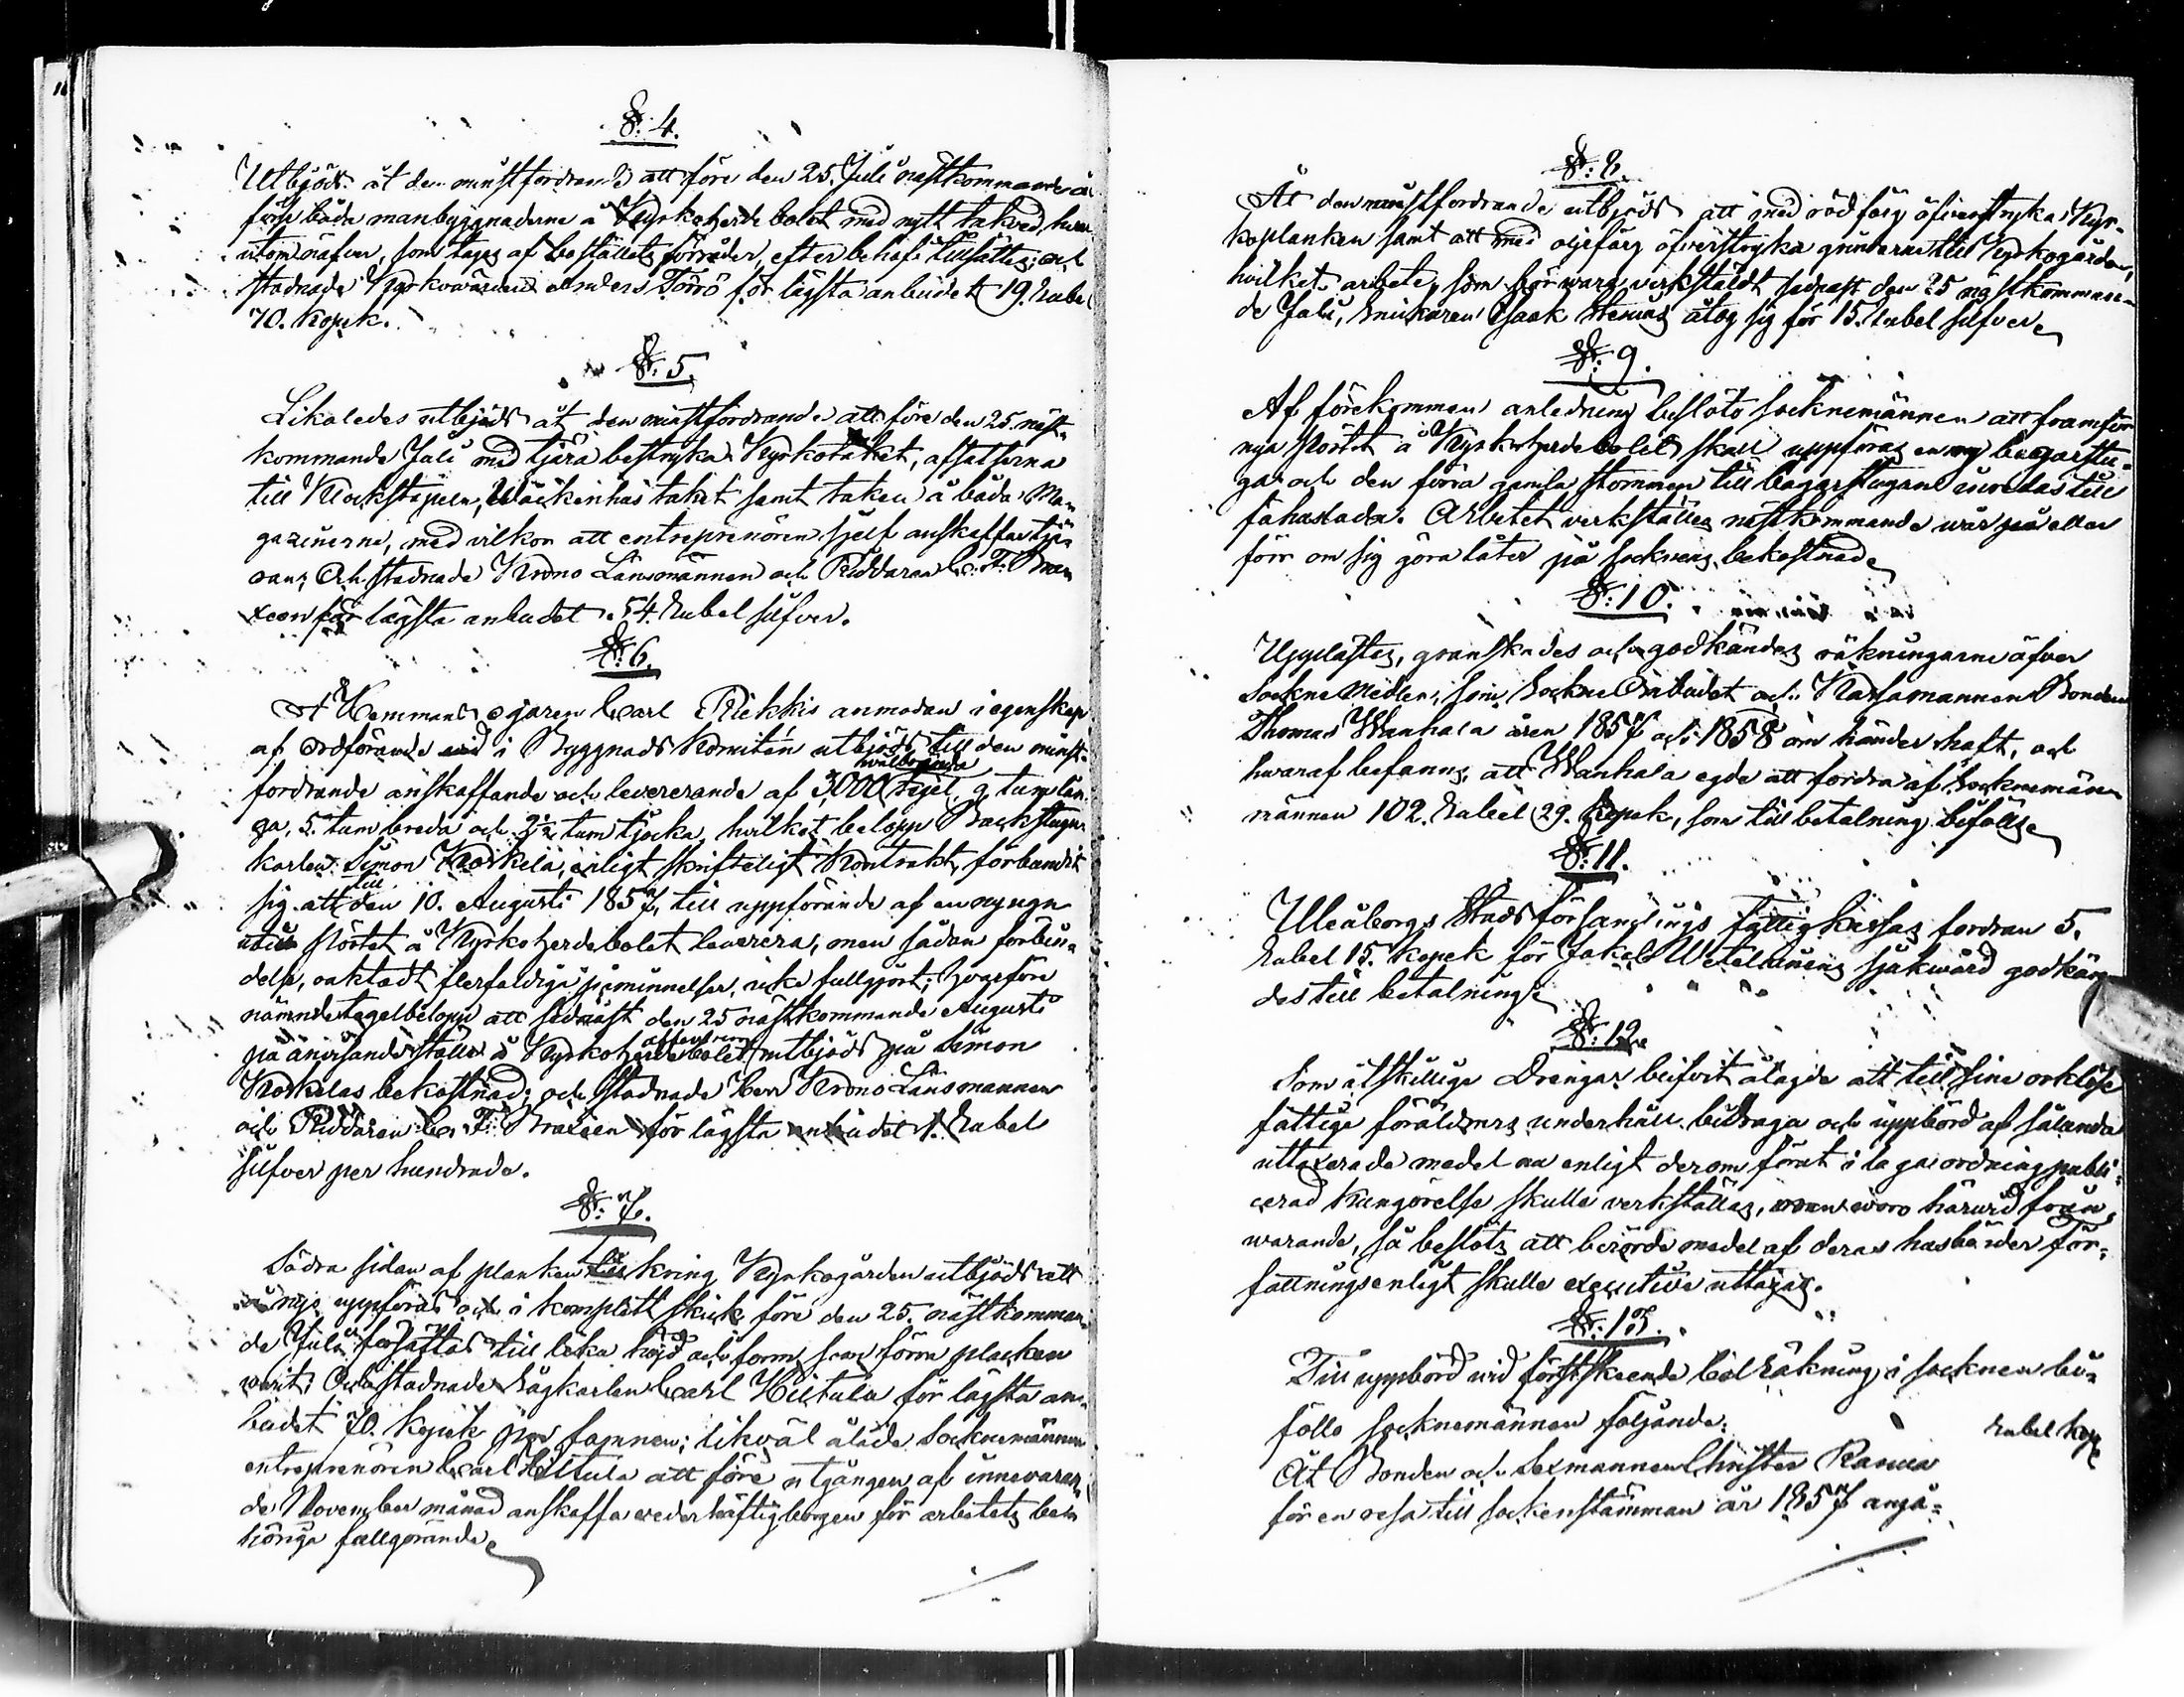 §: 4.
Utbjöds åt den minstfordrande att före den 25. Juli nästkommande år
förse båda manbyggnaderna å Kyrkoherdebolet med nytt takved, hvar
utom näfver, som tages af boställets förråder, efter behof tillsattes; och
stadnade Kyrkovärden Anders Törrö för lägsta anbudet 19. Rubel
70. Kopek.
§: 5.
Likaledes utbjöds åt den minstfordrande att före den 25. näst-
kommande Juli med tjära bestryka Kyrkotaket, afsatserna
till Klockstapeln, taket samt taken å båda Ma-
gazinerne, med vilkor att entreprenören sjelf anskaffar tjä-
ran; Och stadnade Krono Länsmannen och Riddaren C. F. Bra-
xeen för lägsta anbudet 54. Rubel silfver.
§: 6.
Å Hemmans egaren Carl Rekkis anmodan i egenskap
af Ordförande i Byggnads Komitén utbjöds till den minst-
fordrande anskaffande och levererande af 3,000 tegel, 9 tum lån-
välbrända
ga, 5. tum breda och 2½ tum tjocka, hvilket belopp Backstugu-
karlen Simon Korkela, enligt skrifteligt Kontrakt, förbundit
sig att till den 10. Augusti 1857, till uppförande af en ny ugn
uti pörtet å Kyrkoherdebolet leverera, men sådan förbin-
delse, oaktadt flerfaldiga påminnelser, icke fullgjort; hvarföre
nämnde tegelbelopp att sednast den 25 nästkommande Augusti
på anvisande ställe å Kyrkoherdebolet utbjöds på Simon
Korkelas bekostnad; och stadnade Herr Krono Länsmannen
och Riddaren C. F. Braxeen för lägsta anbudet 1. Rubel
silfver per hundrade.
§: 7.
Södra sidan af planken kring Kyrkogården utbjöds att
å nyo uppföras och i komplett skick före den 25. nästkomman-
de Juli försättas till lika höjd och form som förra planken
varit; Och stadnade Sågkarlen Carl Hietala för lägsta an-
budet 70. Kopek per famnen; likväl ålåde Socknemännen
entreprenören Carl Hietala att före utgången af innevaran-
de November månad anskaffa vederhäftig borgen för arbetets behö-
höriga fullgörande.
§: 8.
Åt den minstfordrande utbjöds att med röd färg öfverstryka Kyr-
koplanken samt att med oljefärg öfverstryka grindarne till Kyrkogården,
hvilket arbete, som bör vara verkstäldt sednast den 25 nästkomman-
de Juli, Snickaren Isaak Stenius åtog sig för 15. Rubel silfver.
§: 9.
Af förekommen anledning beslöto socknemännen att framför
nya pörtet å Kyrkoherdebolet skall uppföras en ny bagarstu-
ga och den förra gamla stommen till bagarstugan inredas till
fähus. Arbetet verkställes nästkommande vår eller
förr om sig göra låter på socknens bekostnad.
§: 10.
Upplästes, granskades och godkändes räkningarne öfver
Sockne Medlen, som Sockne Ombudet och Kassamannen Bonden
Thomas Wanhala åren 1857 och 1858 om händer haft, och
hvaraf befanns, att Wanhala egde att fordra af Socknemän-
männen 102. Rubel 29. Kopek, som till betalning biföllse.
§: 11.
Uleåborgs Stadsförsamlings Fattigkassas fordran 5.
Rubel 15. Kopek för Jakob sjukvård godkän-
des till betalning.
§: 12.
Som åtskillige Drengar blifvit ålagde att till sine orklöse
fattige föräldrars underhåll bidraga och uppbörd af sålunda
uttaxerade medel nu enligt derom förut i laga ordning publi-
cerad kungörelse skulle verkställas, men voro härvid fråu-
warande, så beslöts att berörde medel af deras husbönder för-
fattningsenligt skulle executive uttagas.
§: 13.
Till uppbörd vid förstskeende bolräkning i socknen bi-
föllo socknemännen följande:
Rubel Kop
Åt Bonden och Sexmannen Christer Ranua
för en resa till sockenstämman år 1857 angå-